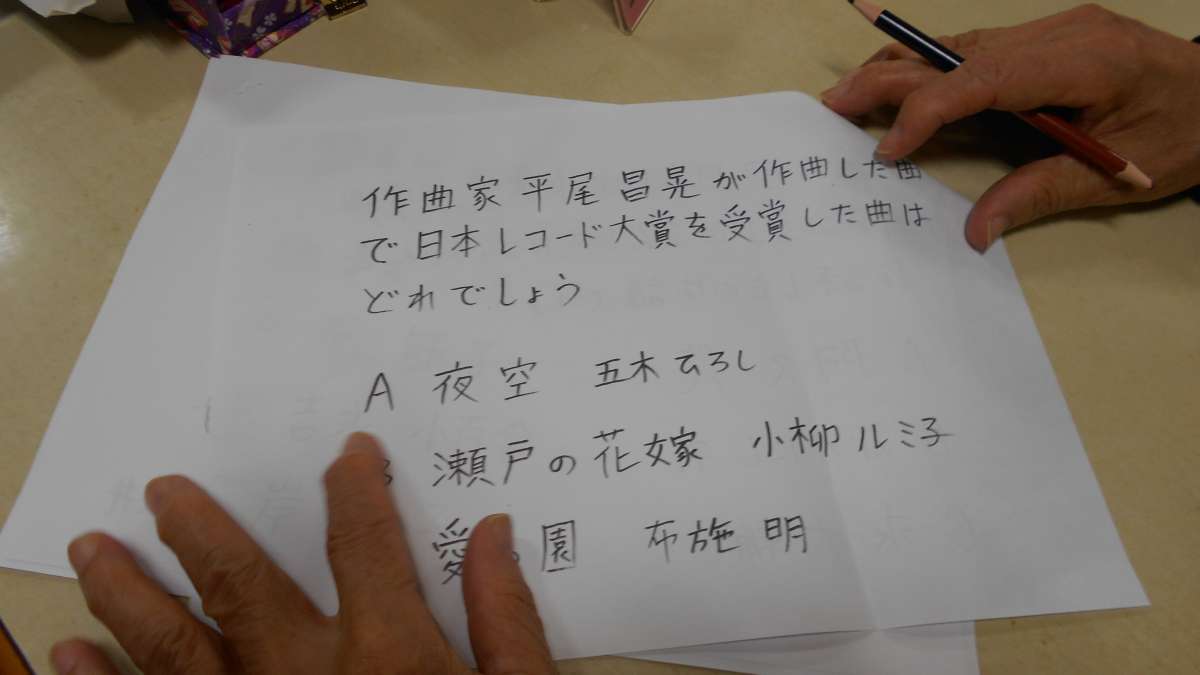 作曲家 平尾昌晃が作曲した曲
で日本レコード大賞を受賞した曲は
どれでしょう
A 夜空 五木ひろし
瀬戸の花嫁 小柳ルミ子
愛の園 布施明